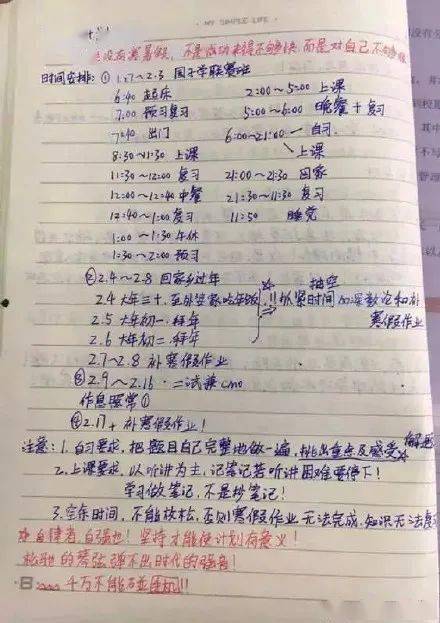 MY SIMPLE LIFE
没有寒暑假，不是成功来得不够快，而是对自己不够狠
时间安排：① 1.27~2.3 国子学联赛班
6:40 起床 2:00~5:00 上课
7:00 预习复习 5:00~6:00 晚餐+复习
7:40 出门 6:00~21:00 自习
8:30~11:30 上课 上课
11:30~12:00 复习 21:00~21:30 回家
12:00~12:40 中餐 21:30~11:30 复习
12:40~1:00 复习 11:50 睡觉
1:00~1:30 午休
1:30~2:00 预习
②2.4~2.8 回家乡过年
2.4 大年三十，至外签家吃年饭 抽空
!!抓紧时间 加深数论和补
2.5 大年初一，拜年 寒假作业
2.6 大年初二，拜年
2.7~2.8 补寒假作业
③2.9~2.16 二试兼CMO
作息照常①
④2.17+ 补寒假作业！
注意：1. 自习要求，把题目自己完整地做一遍，挑出重点及感受
2. 上课要求，以听讲为主，记笔记若听讲困难要停下！
学习做笔记，不是抄笔记！
3. 空余时间，不能放松，否则寒假作业无法完成，知识无法复
自律者，自强也！坚持才能使计划有意义！
松驰的琴弦弹不出时代的强音！
千万不能碰手机!!